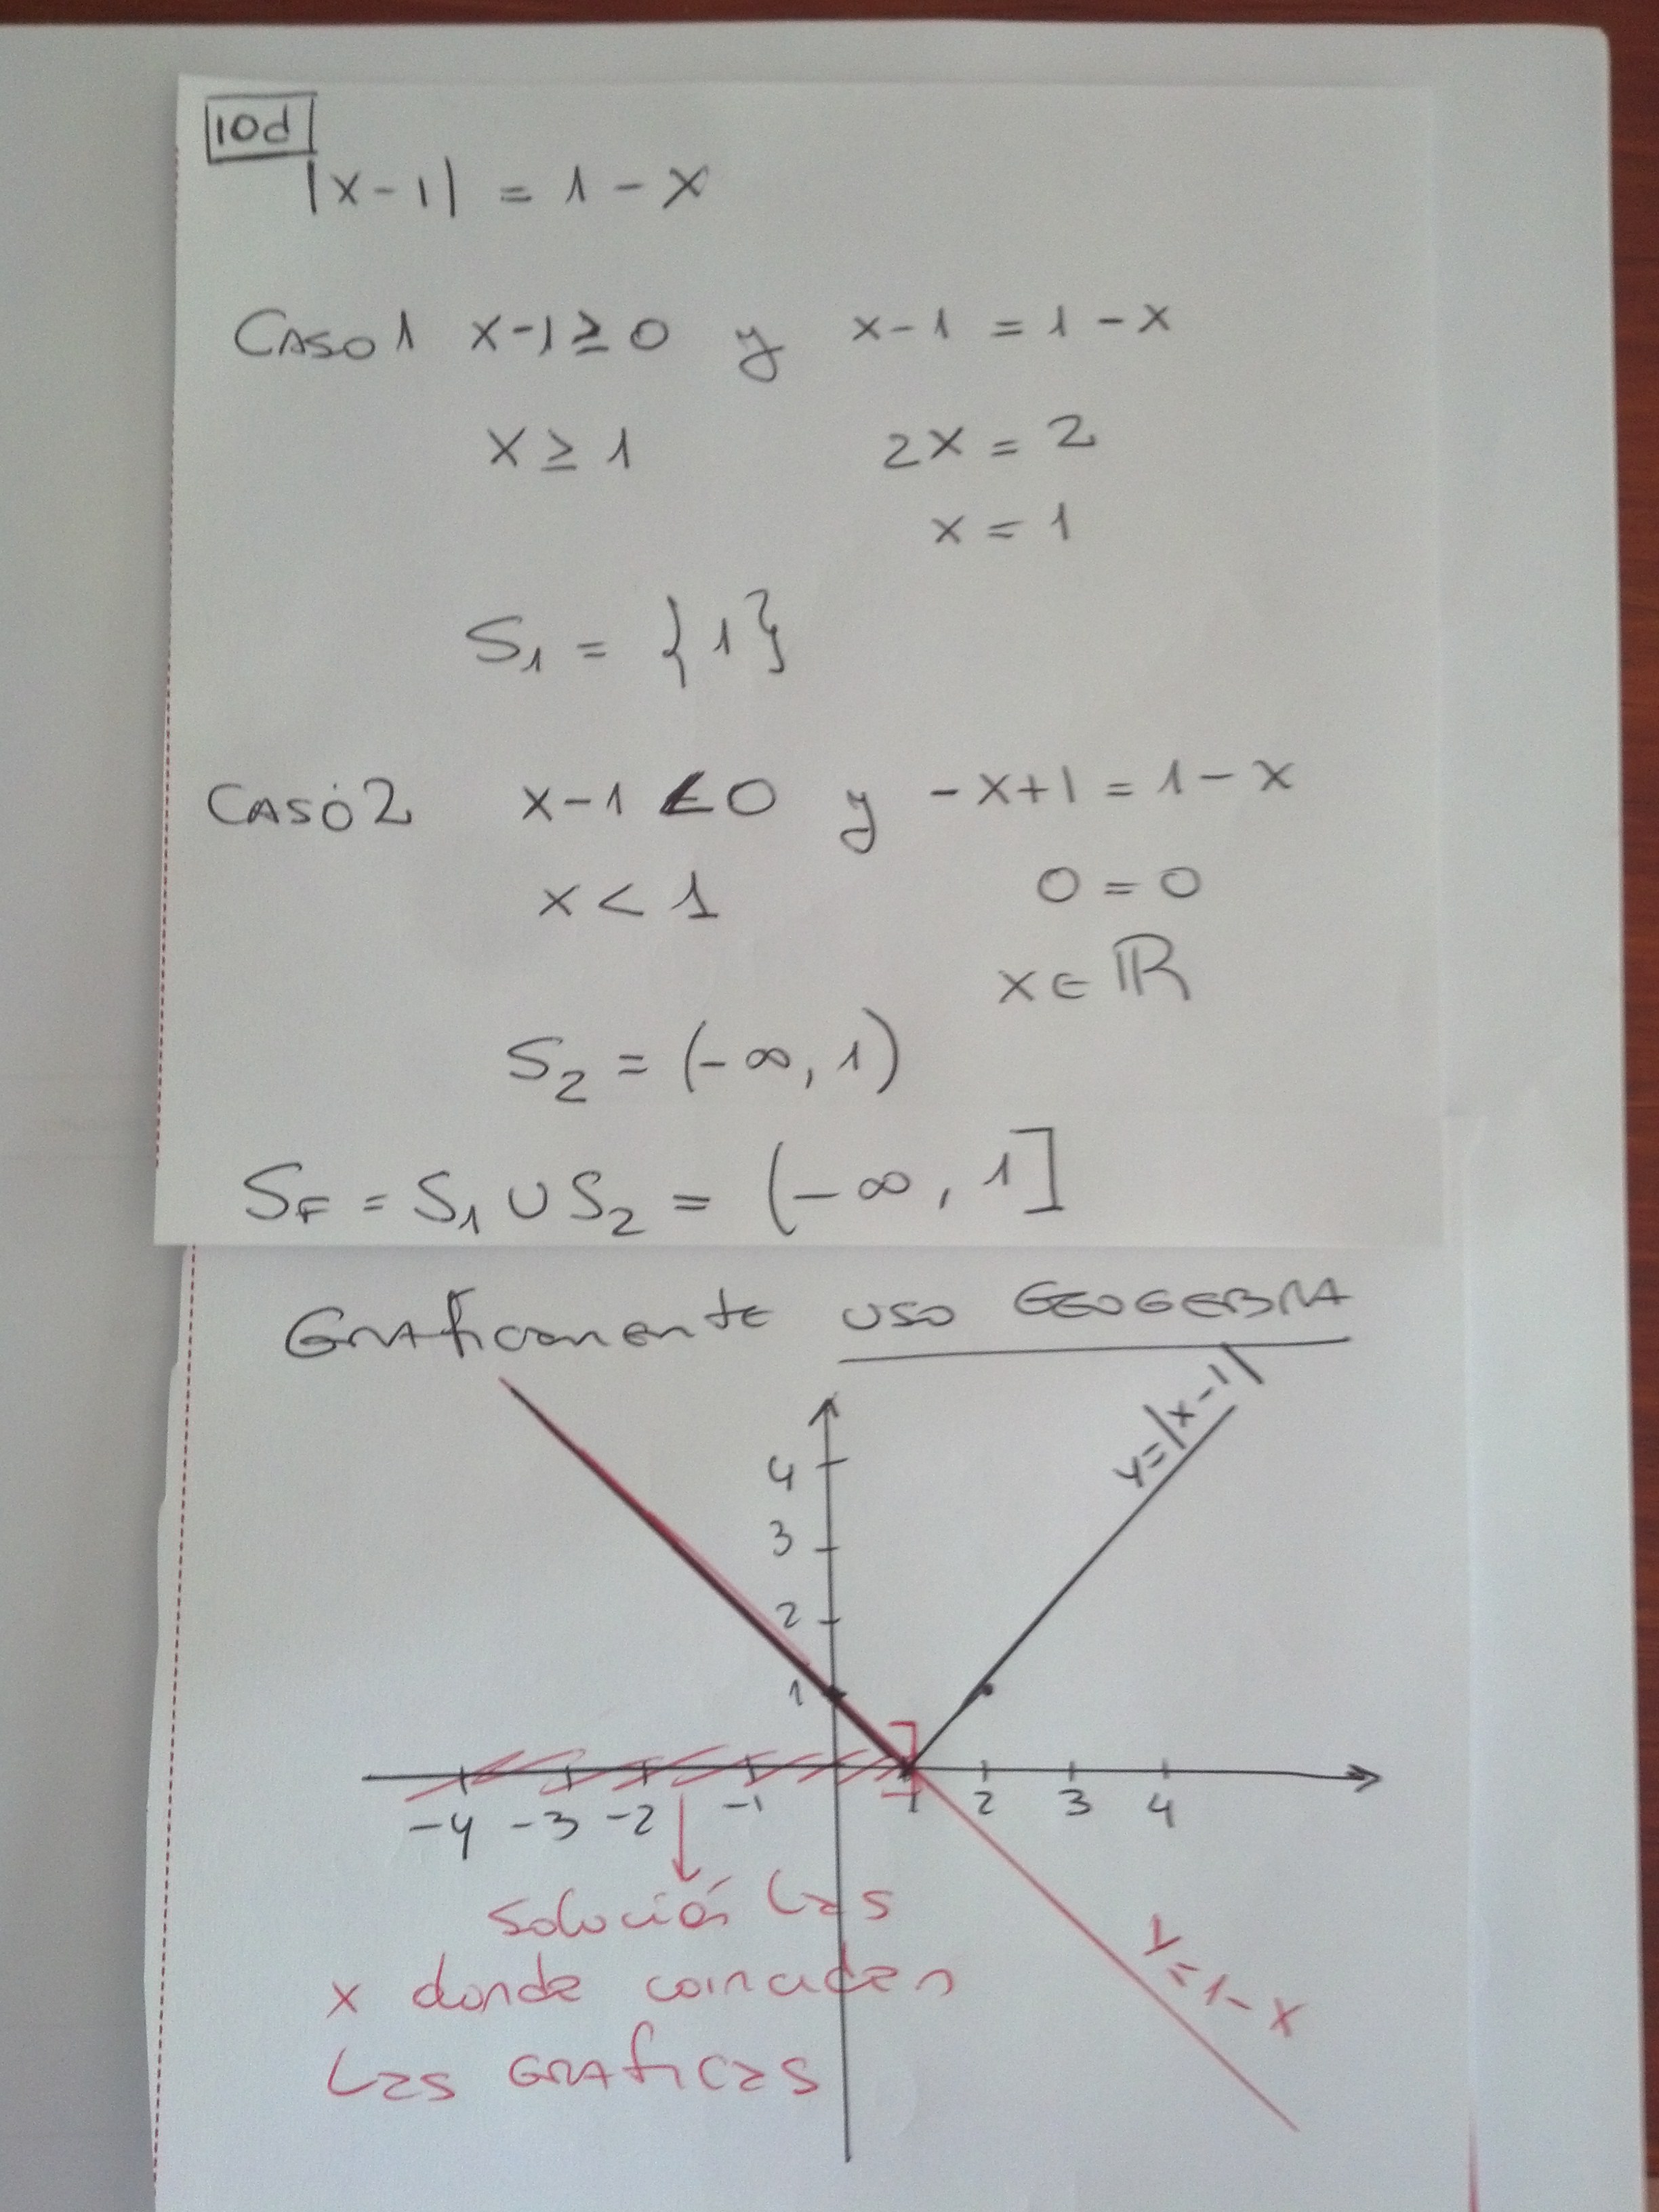 10d
|x-1| = 1-x
CASO1 x-1≥0 y x-1 = 1-x
x≥1 2x = 2
x = 1
S₁ = {1}
CASO2 x-1<0 y -x+1 = 1-x
x<1 0=0
x∈ℝ
S₂ = (-∞, 1)
SF = S₁ ∪ S₂ = (-∞, 1]
GRAficamente uso GEOGEBRA
y=|x-1|
4
3
2
1
]
-4 -3 -2 -1 1 2 3 4
solución las
x donde coinciden
las GRAficas
y=1-x